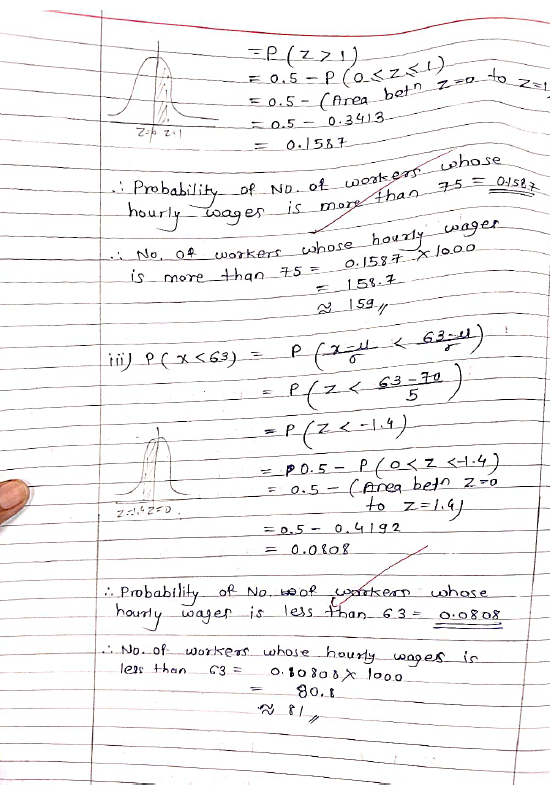 = P ( Z > 1 )
= 0.5 - P ( 0 < Z < 1 )
= 0.5 - ( Area betn Z=0 to Z=1
= 0.5 - 0.3413
= 0.1587
Z=0 Z=1
∴ Probability of No. of workers whose
hourly wages is more than 75 = 0.1587
∴ No. of workers whose hourly wages
is more than 75 = 0.1587 × 1000
= 158.7
≈ 159 //
iii) P ( x < 63 ) = P ( x-μ/σ < 63-μ/σ )
= P ( Z < 63-70/5 )
= P ( Z < -1.4 )
= 0.5 - P ( 0 < Z < -1.4 )
= 0.5 - ( Area betn Z=0
to Z=1.4 )
Z=-1.4 Z=0
= 0.5 - 0.4192
= 0.0808
∴ Probability of No. of workers whose
hourly wages is less than 63 = 0.0808
∴ No. of workers whose hourly wages is
less than 63 = 0.80808 × 1000
= 80.8
≈ 81 //